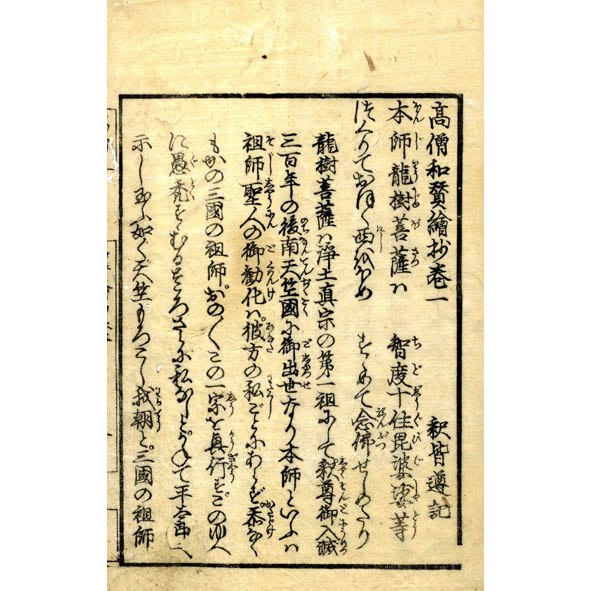 高僧和賛繪抄巻一　釈皆遵記
本師龍樹菩薩ハ　智度十住毘婆娑等
つくりておほく西をほめ　すゝめて念佛せしめたり
龍樹菩薩ハ浄土真宗の第一祖にして釈尊御入滅
三百年の後南天竺國に御出世なり本師といふハ
祖師聖人の御勧化ハ彼方の私ごとにあらず忝なく
もかの三國の祖師おの〳〵この一宗を興行すこのゆへ
に愚禿すゝむるところさらに私なしとかねて平太郎へ
示し玉ふ如く天竺もろこし我朝と三國の祖師